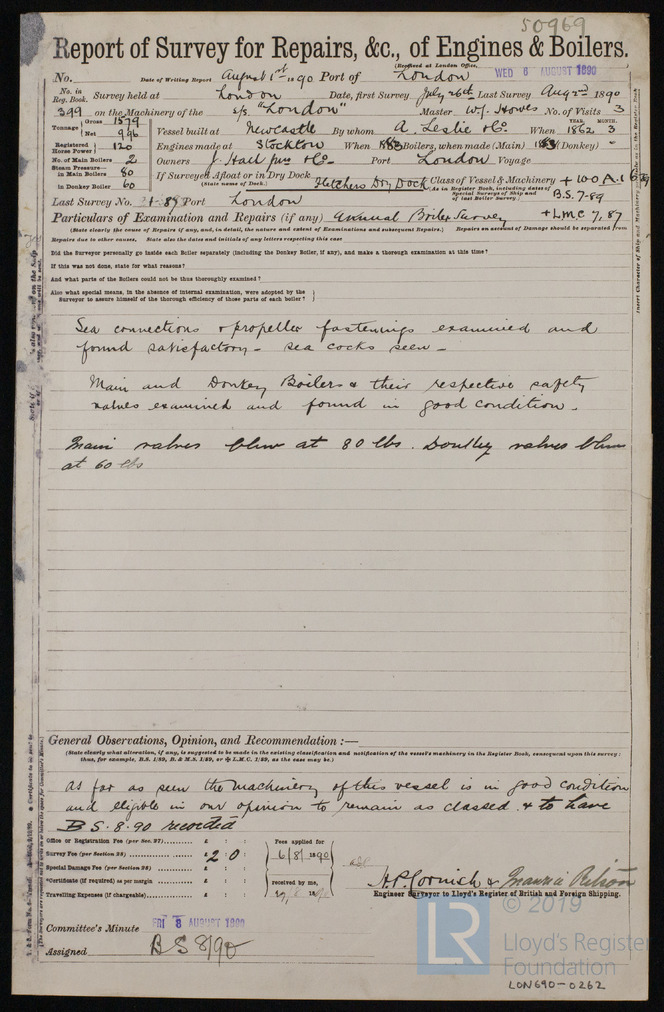 50969
Report of Survey for Repairs, &c., of Engines & Boilers.
(Received at London Office,
No. Date of Writing Report August 1st 1890 Port of London WED 6 AUGUST 1890
No. in Reg. Book. Survey held at London Date, first Survey July 26th Last Survey Aug 2nd 1890
399 on the Machinery of the s/s "London" Master W.J. Howes No. of Visits 3
Tonnage Gross 1579 Net 996
Vessel built at Newcastle By whom A. Leslie & Co. When 1862 YEAR. MONTH. 3
Registered Horse Power 120 Engines made at Stockton When 1883 Boilers, when made (Main) 1883 (Donkey)
No. of Main Boilers 2 Owners J. Hall junr & Co. Port London Voyage
Steam Pressure— in Main Boilers 80 If Surveyed Afloat or in Dry Dock Fletchers Dry Dock Class of Vessel & Machinery + 100 A.1
(State name of Dock.) (As in Register Book, including dates of Special Surveys of Ship and of last Boiler Survey.) B.S. 7-89
in Donkey Boiler 60
Last Survey No. Port London
+ L.M.C 7,87
Particulars of Examination and Repairs (if any) Annual Boiler Survey
(State clearly the cause of Repairs if any, and, in detail, the nature and extent of Examinations and subsequent Repairs.) Repairs on account of Damage should be separated from
Repairs due to other causes. State also the dates and initials of any letters respecting this case
Did the Surveyor personally go inside each Boiler separately (including the Donkey Boiler, if any), and make a thorough examination at this time?
If this was not done, state for what reasons?
And what parts of the Boilers could not be thus thoroughly examined?
Also what special means, in the absence of internal examination, were adopted by the
Surveyor to assure himself of the thorough efficiency of those parts of each boiler?
Sea connections & propeller fastenings examined and
found satisfactory - sea cocks seen -
Main and Donkey Boilers & their respective safety
valves examined and found in good condition.
Main valves blew at 80 lbs. Donkey valves blew
at 60 lbs
General Observations, Opinion, and Recommendation :—
(State clearly what alteration, if any, is suggested to be made in the existing classification and notification of the vessel's machinery in the Register Book, consequent upon this survey:
thus, for example, B.S. 1/89, B. & M.S. 1/89, or L.M.C. 1/89, as the case may be.)
As far as seen the machinery of this vessel is in good condition
and eligible in our opinion to remain as classed & to have
B S. 8.90 recorded
Office or Registration Fee (per Sec. 27) £ : :
Survey Fee (per Section 28) £ 2 : 0 :
Special Damage Fee (per Section 28) £ : :
*Certificate (if required) as per margin £ : :
Travelling Expenses (if chargeable) £ : :
Fees applied for
6/8/1890
received by me,
A.P. Cornish &
Engineer Surveyor to Lloyd's Register of British and Foreign Shipping.
Committee's Minute FRI 8 AUGUST 1890
Assigned B S 8/90
© 2019
LR
Lloyd's Register
Foundation
LON690-0262